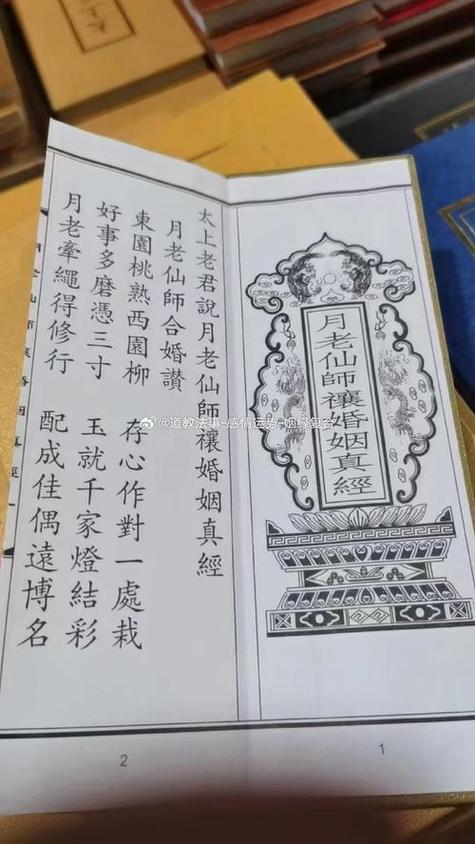 月老仙師禳婚姻真經
1
太上老君說月老仙師禳婚姻真經
月老仙師合婚讚
東園桃熟西園柳 存心作對一處栽
好事多磨憑三寸 玉就千家燈結彩
月老牽繩得修行 配成佳偶遠博名
月老仙師禳婚姻真經 一
2
@道教法事-感情运势-姻缘复合